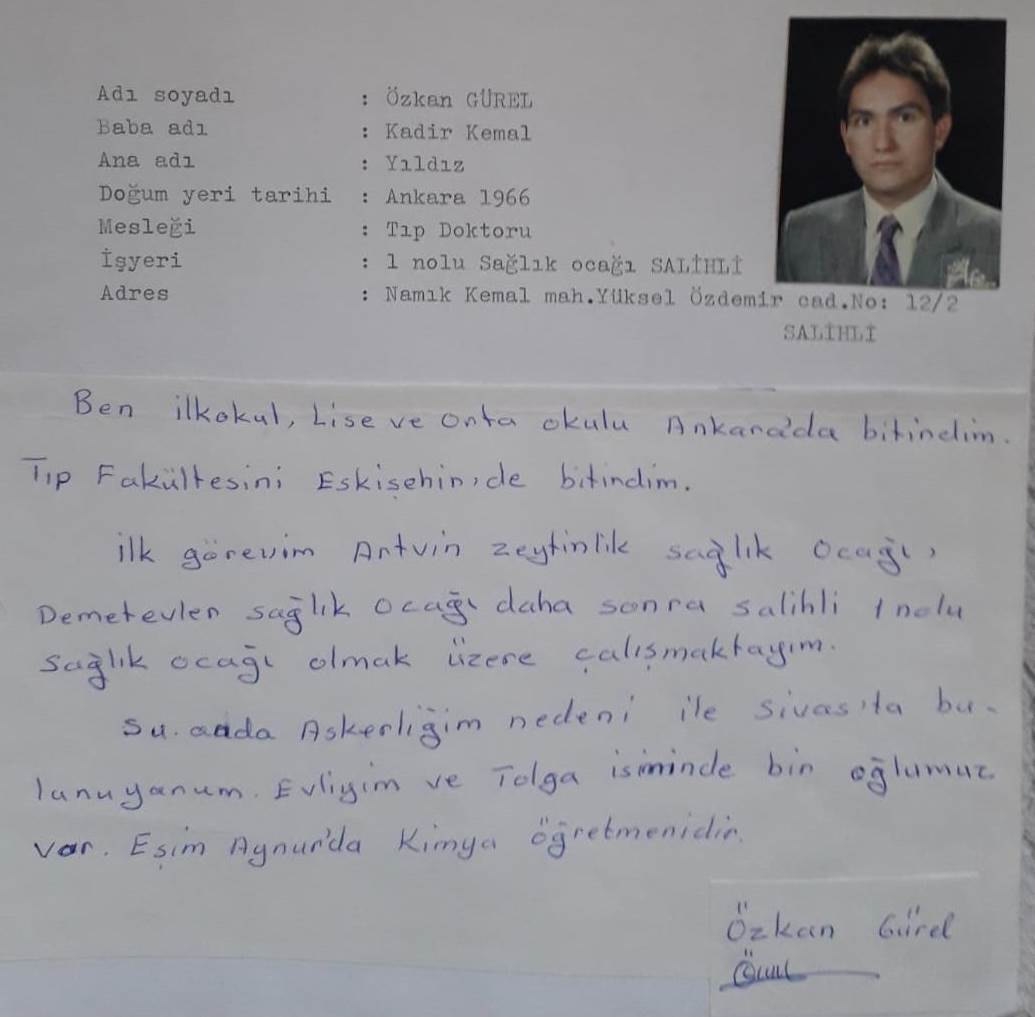 Adı soyadı : Özkan GÜREL
Baba adı : Kadir Kemal
Ana adı : Yıldız
Doğum yeri tarihi : Ankara 1966
Mesleği : Tıp Doktoru
İşyeri : 1 nolu Sağlık ocağı SALİHLİ
Adres : Namık Kemal mah.Yüksel Özdemir cad.No: 12/2
SALİHLİ
Ben ilkokul, Lise ve orta okulu Ankara'da bitirdim.
Tıp Fakültesini Eskişehir'de bitirdim.
ilk görevim Artvin zeytinlik sağlık Ocağı,
Demetevler sağlık ocağı daha sonra salihli 1 nolu
sağlık ocağı olmak üzere çalışmaktayım.
Su. anda Askerliğim nedeni ile sivas'ta bu-
lunuyorum. Evliyim ve Tolga isiminde bir oğlumuz
var. Eşim Aynur'da Kimya öğretmenidir.
Özkan Gürel